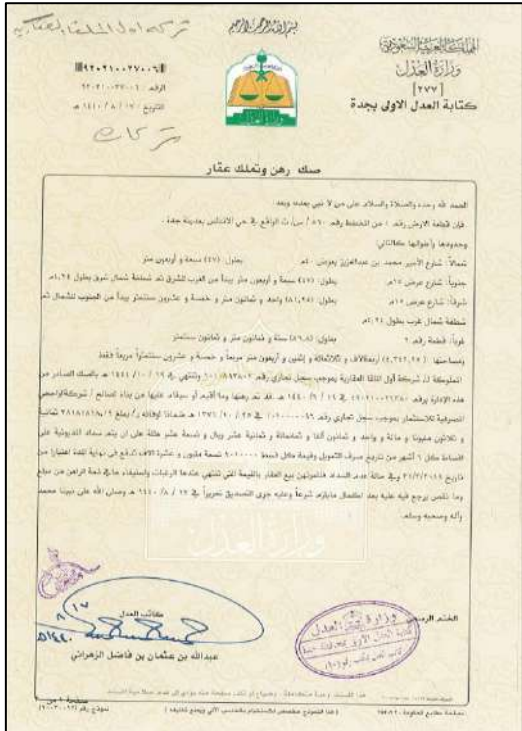 بسم الله الرحمن الرحيم
المملكة العربية السعودية
وزارة العدل
[٢٧٧]
كتابة العدل الاولى بجدة
الرقم : ٩٢٠٢١٠٠٢٧٠٠٦
التاريخ : ١٧ / ٨ / ١٤٤٠ هـ
صك رهن وتملك عقار
الحمد لله وحده والصلاة والسلام على من لا نبي بعده، وبعد:
فإن قطعة الارض رقم ١ من المخطط رقم ٨٦٠ / س/ ت الواقع في حي الاندلس بمدينة جدة .
وحدودها وأطوالها كالتالي:
شمالاً: شارع الأمير محمد بن عبدالعزيز بعرض ٤٠م بطول: (٤٧) سبعة و أربعون متر
جنوباً: شارع عرض ١٥م بطول: (٤٧) سبعة و أربعون متر يبدأ من الغرب للشرق ثم شطفة شمال شرق بطول ٤,٢٤م
شرقاً: شارع عرض ١٥م بطول: (٨١,٢٥) واحد و ثمانون متر و خمسة و عشرون سنتمتر يبدأ من الجنوب للشمال ثم
شطفة شمال غرب بطول ٤,٢٤م
غرباً: قطعة رقم ٢ بطول: (٨٦,٨) ستة و ثمانون متر و ثمانون سنتمتر
ومساحتها : (٤,٣٤٢,٢٥) أربعة آلاف و ثلاثمائة و إثنين و أربعون متر مربعاً و خمسة و عشرون سنتمتراً مربعاً فقط
المملوكة لـ شركة أول الملقا العقارية بموجب سجل تجاري رقم وتنتهي في ١٩ / ١٠ / ١٤٤٤ هـ بالصك الصادر من
هذه الإدارة برقم في ١٩ / ٦ / ١٤٤٠ هـ قد تم رهنها وما أقيم أو سيقام عليها من بناء لصالح / شركة الراجحي
المصرفية للاستثمار بموجب سجل تجاري رقم في ٢٥ / ١٠ / ١٣٧٦ هـ ضمانا لوفائه بـ/ مبلغ ثمانية
و ثلاثون مليونا و مائة و واحد و ثمانون ألفا و ثمانمائة و ثمانية عشر ريال و تسعة عشر هللة على ان يتم سداد المديونية على
اقساط كل ٦ أشهر من تاريخ صرف التمويل وقيمة كل قسط تسعة مليون و عشرة الاف تدفع في نهاية المدة اعتبارا من
تاريخ وفي حالة عدم السداد فللمرتهن بيع العقار بالقيمة التي تنتهي عندها الرغبات واستيفاء ما في ذمة الراهن من مبلغ
وما نقص يرجع فيه عليه بعد اكتمال مايلزم شرعاً وعليه جرى التصديق تحريراً في ١٧ / ٨ / ١٤٤٠ هـ وصلى الله على نبينا محمد
وآله وصحبه وسلم.
كاتب العدل
عبدالله بن عثمان بن فاضل الزهراني
الختم الرسمي
وزارة العدل
( هذا النموذج مخصص للاستخدام بالحاسب الآلي ويمنع تغليفه )